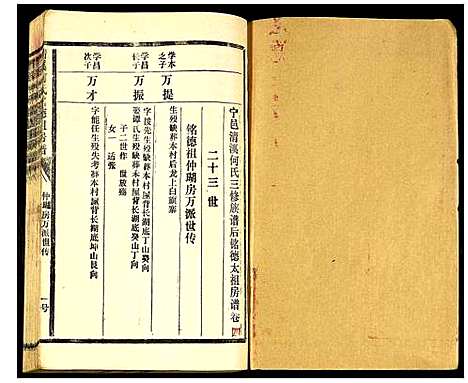 宁邑清溪何氏三修族谱后铭德太祖房谱卷四
二十三世
铭德祖仲瑚房万派世传
学本之子 万提
生殁缺葬本村后龙上白旗寨
学昌长子 万振
字拔先生殁缺葬本村屋背长湖底丁山癸向
娶谭氏生殁缺葬本村屋背长湖底癸山丁向
子二世作 世放殇
女一 适张
学昌次子 万才
字能任生殁失考葬本村屋背长湖底坤山艮向
仲瑚房万派世传
一号